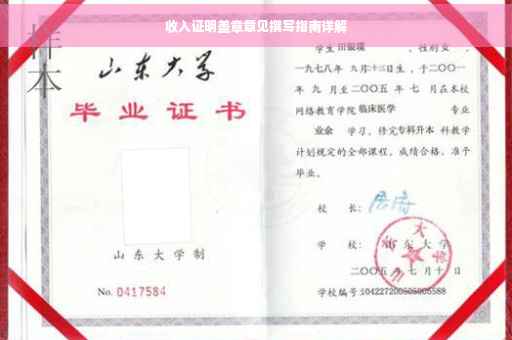 收入证明盖章意见撰写指南详解
样本
山东大学
毕业证书
山东大学制
No. 0417584
学生田银瑞 ，性别女 ，
一九七八年 九月十三日生，于二〇〇一
年 九 月至二〇〇五 年 七 月在本校
网络教育学院临床医学 专业
业余 学习，修完专科升本 科教学
计划规定的全部课程，成绩合格，准予
毕业。
校 长：
学 校：山东大学
二〇〇五 年 七 月 十 日
学校编号:104227200505005588